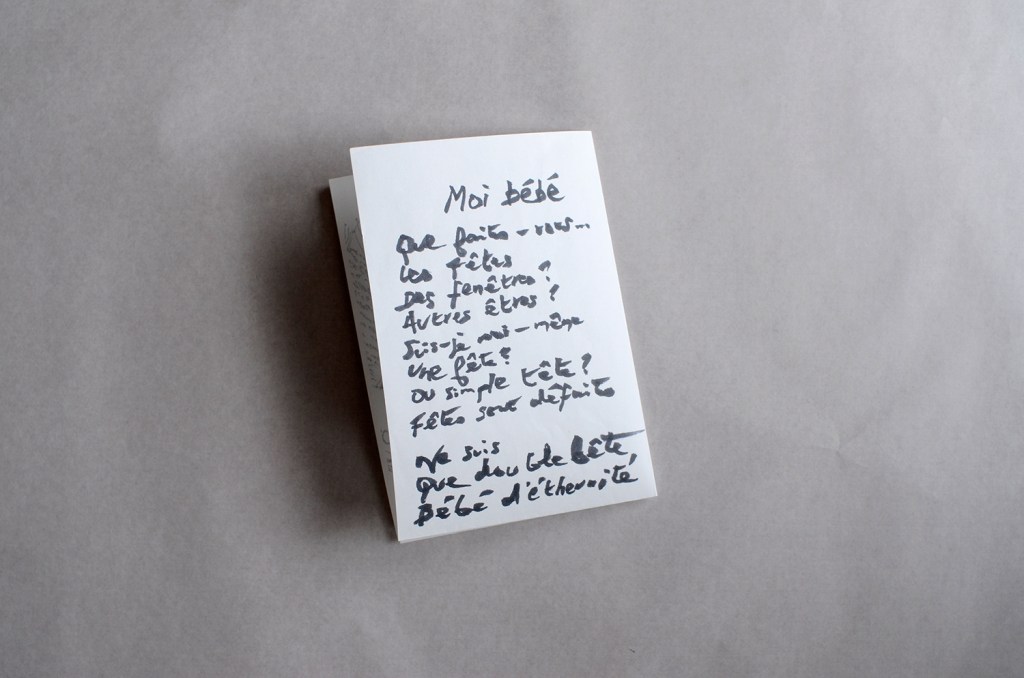 Moi bébé
Que faites-vous...
Les fêtes
Des fenêtres?
Autres êtres?
Suis-je moi-même
Une fête?
Ou simple tête?
Fêtes sont défaites
Ne suis
Que double bête,
Bébé d'éthernite